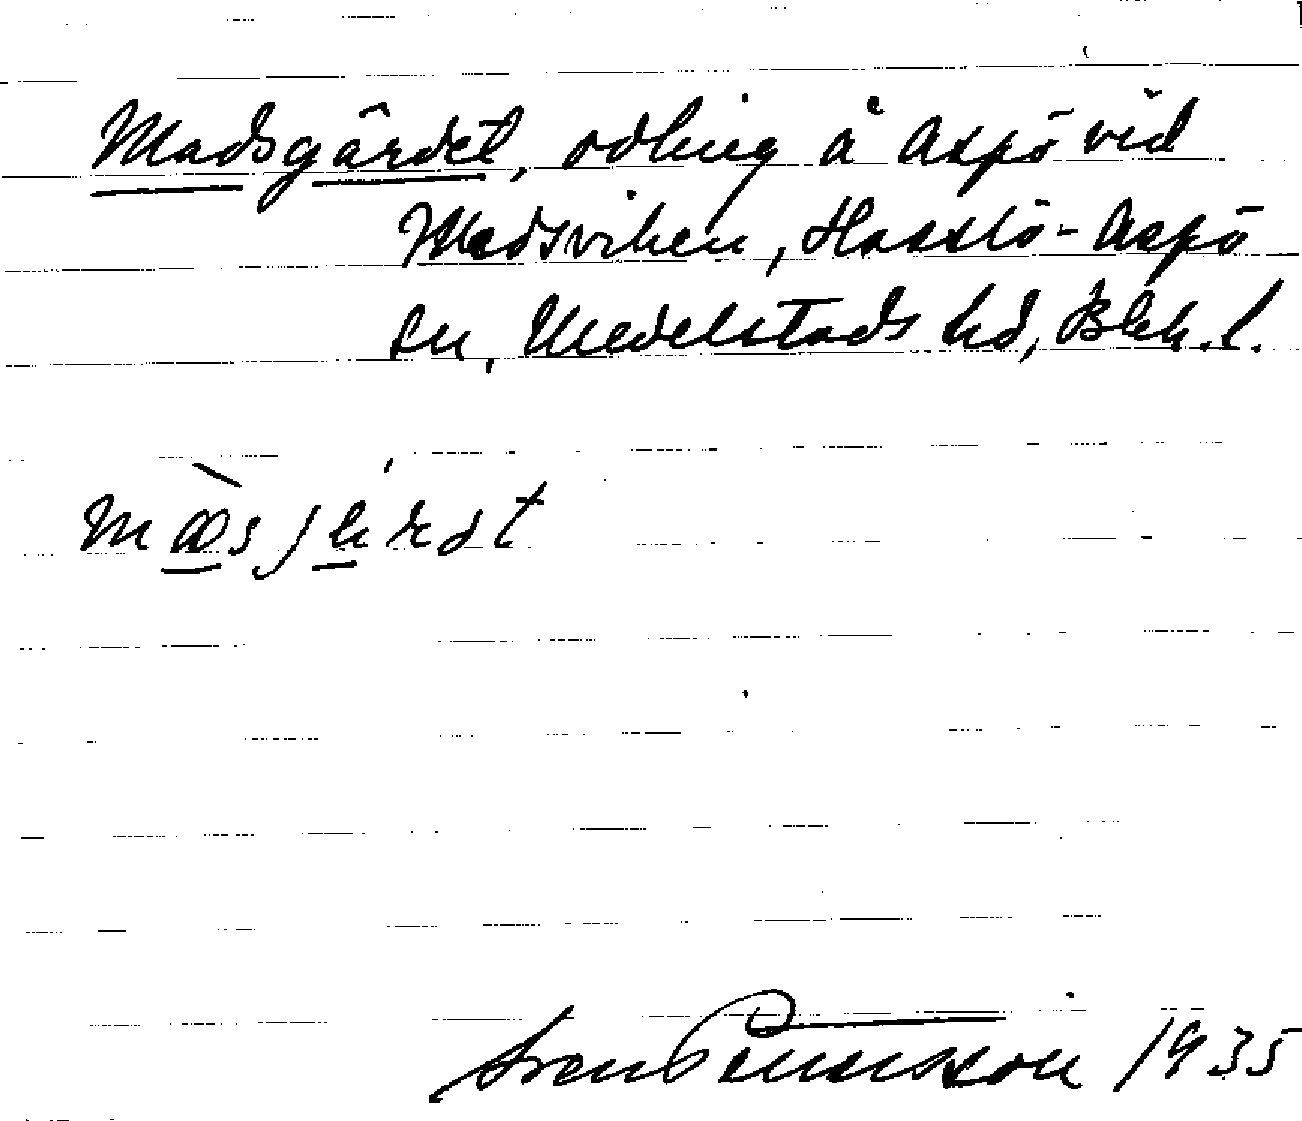 Madsgärdet, odling å Aspö vid
Madsviken, Hasslö-Aspö
sn, Medelstads hd, Blek. l.
Sven Benson 1935